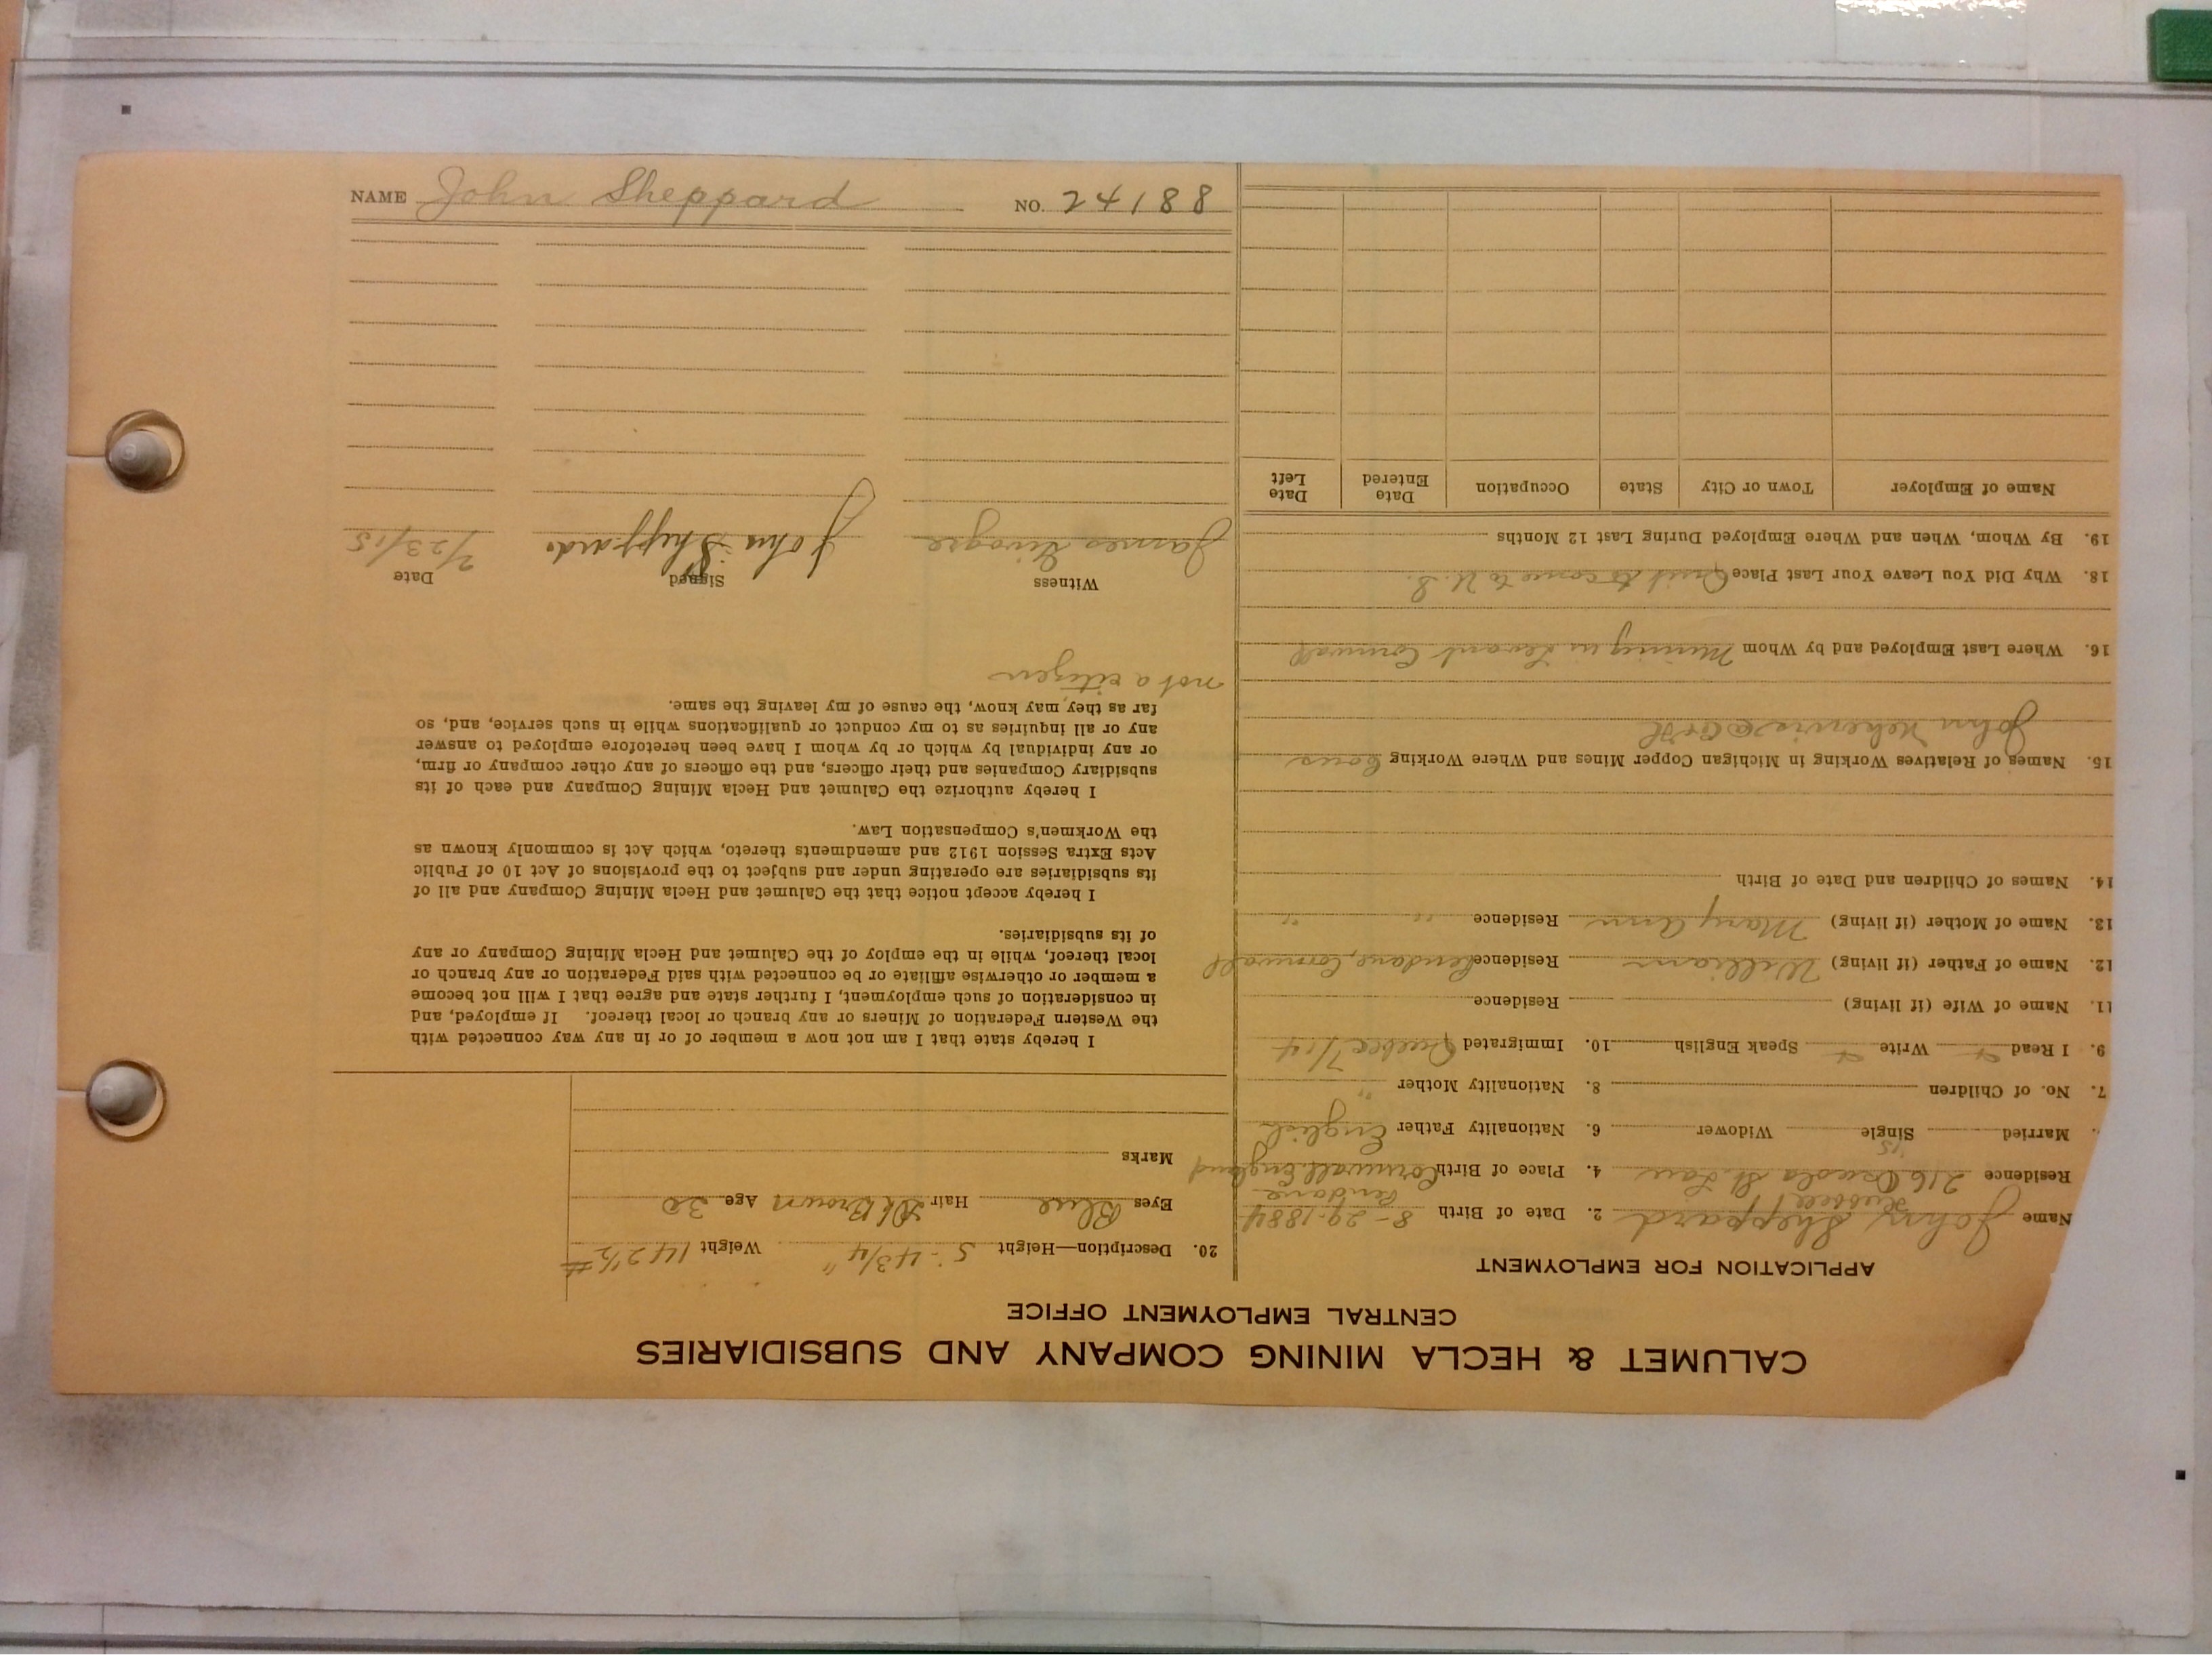 NAME John Sheppard NO. 24188
CALUMET & HECLA MINING COMPANY AND SUBSIDIARIES
CENTRAL EMPLOYMENT OFFICE
APPLICATION FOR EMPLOYMENT
Name John Sheppard 2. Date of Birth 8-29-1884
Hubbell Pendane
Residence 216 Osceola St. Lau 4. Place of Birth Cornwall England
Married Single Widower 6. Nationality Father English
7. No. of Children 8. Nationality Mother "
9. I Read Write Speak English 10. Immigrated Quebec 7/14
11. Name of Wife (if living) Residence
12. Name of Father (if living) William Residence Pendane, Cornwall
13. Name of Mother (if living) Mary Ann Residence " "
14. Names of Children and Date of Birth
15. Names of Relatives Working in Michigan Copper Mines and Where Working Cous
John @ C+H
16. Where Last Employed and by Whom Mining in Levant Cornwall
18. Why Did You Leave Your Last Place Quit to come to U.S.
19. By Whom, When and Where Employed During Last 12 Months
Name of Employer Town or City State Occupation Date Entered Date Left
20. Description—Height 5-4 3/4" Weight 142 1/2 #
Eyes Blue Hair Dk Brown Age 30
Marks
I hereby state that I am not now a member of or in any way connected with
the Western Federation of Miners or any branch or local thereof. If employed, and
in consideration of such employment, I further state and agree that I will not become
a member or otherwise affiliate or be connected with said Federation or any branch or
local thereof, while in the employ of the Calumet and Hecla Mining Company or any
of its subsidiaries.
I hereby accept notice that the Calumet and Hecla Mining Company and all of
its subsidiaries are operating under and subject to the provisions of Act 10 of Public
Acts Extra Session 1912 and amendments thereto, which Act is commonly known as
the Workmen's Compensation Law.
I hereby authorize the Calumet and Hecla Mining Company and each of its
subsidiary Companies and their officers, and the officers of any other company or firm,
or any individual by which or by whom I have been heretofore employed to answer
any or all inquiries as to my conduct or qualifications while in such service, and, so
far as they may know, the cause of my leaving the same.
not a citizen
Witness Signed Date
James John Sheppard 7/23/15